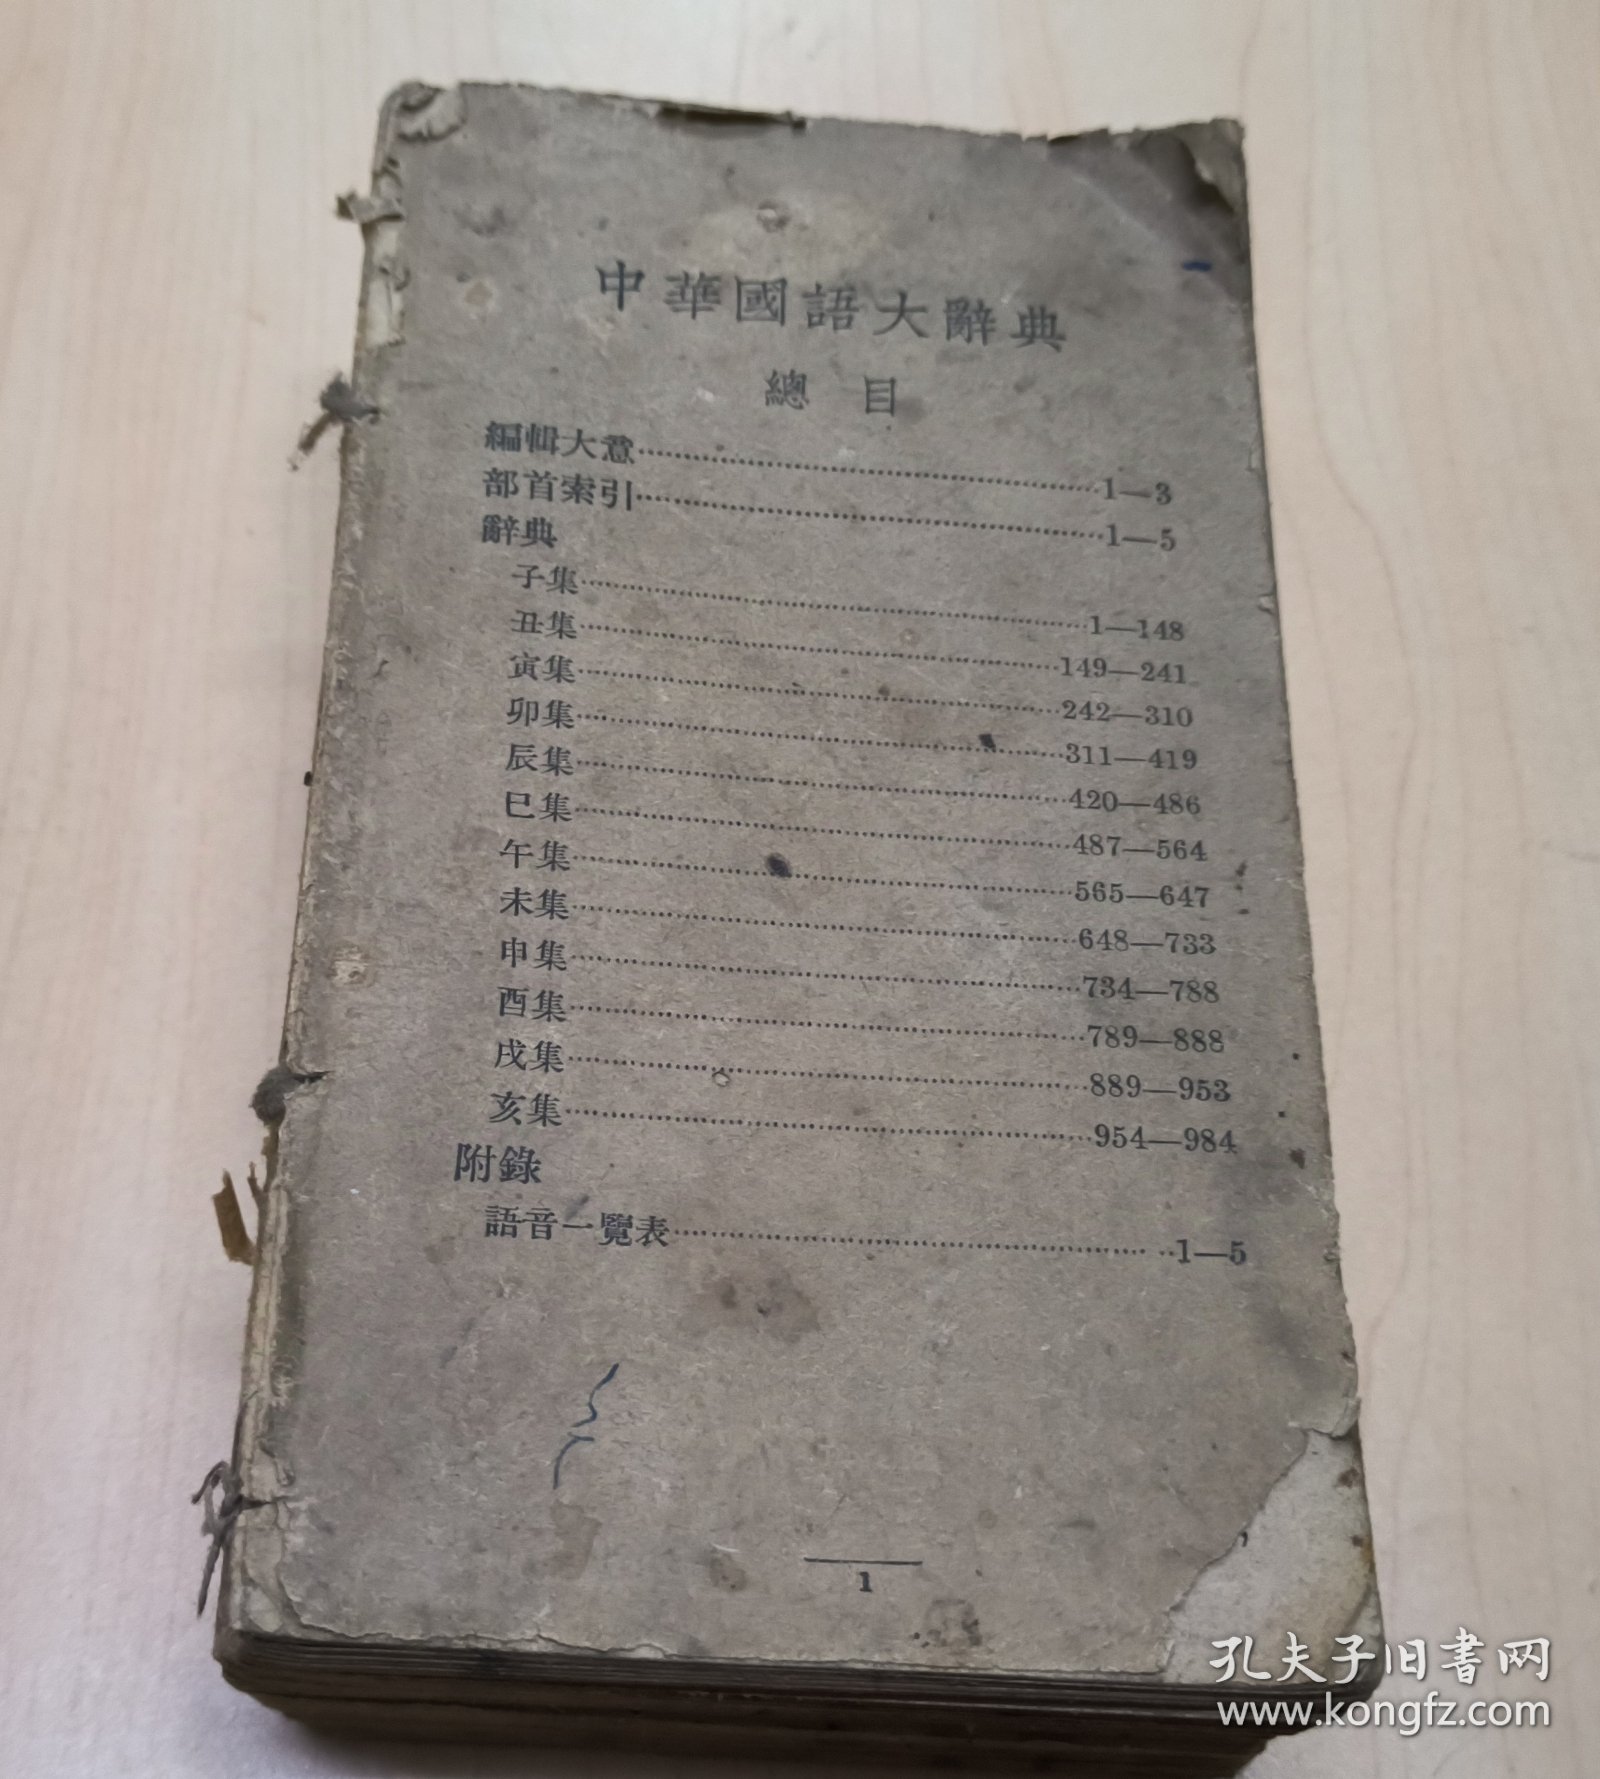 中華國語大辭典
總目
編輯大意 1—3
部首索引 1—5
辭典
子集 1—148
丑集 149—241
寅集 242—310
卯集 311—419
辰集 420—486
巳集 487—564
午集 565—647
未集 648—733
申集 734—788
酉集 789—888
戌集 889—953
亥集 954—984
附錄
語音一覽表 1—5
1
孔夫子旧书网
www.kongfz.com